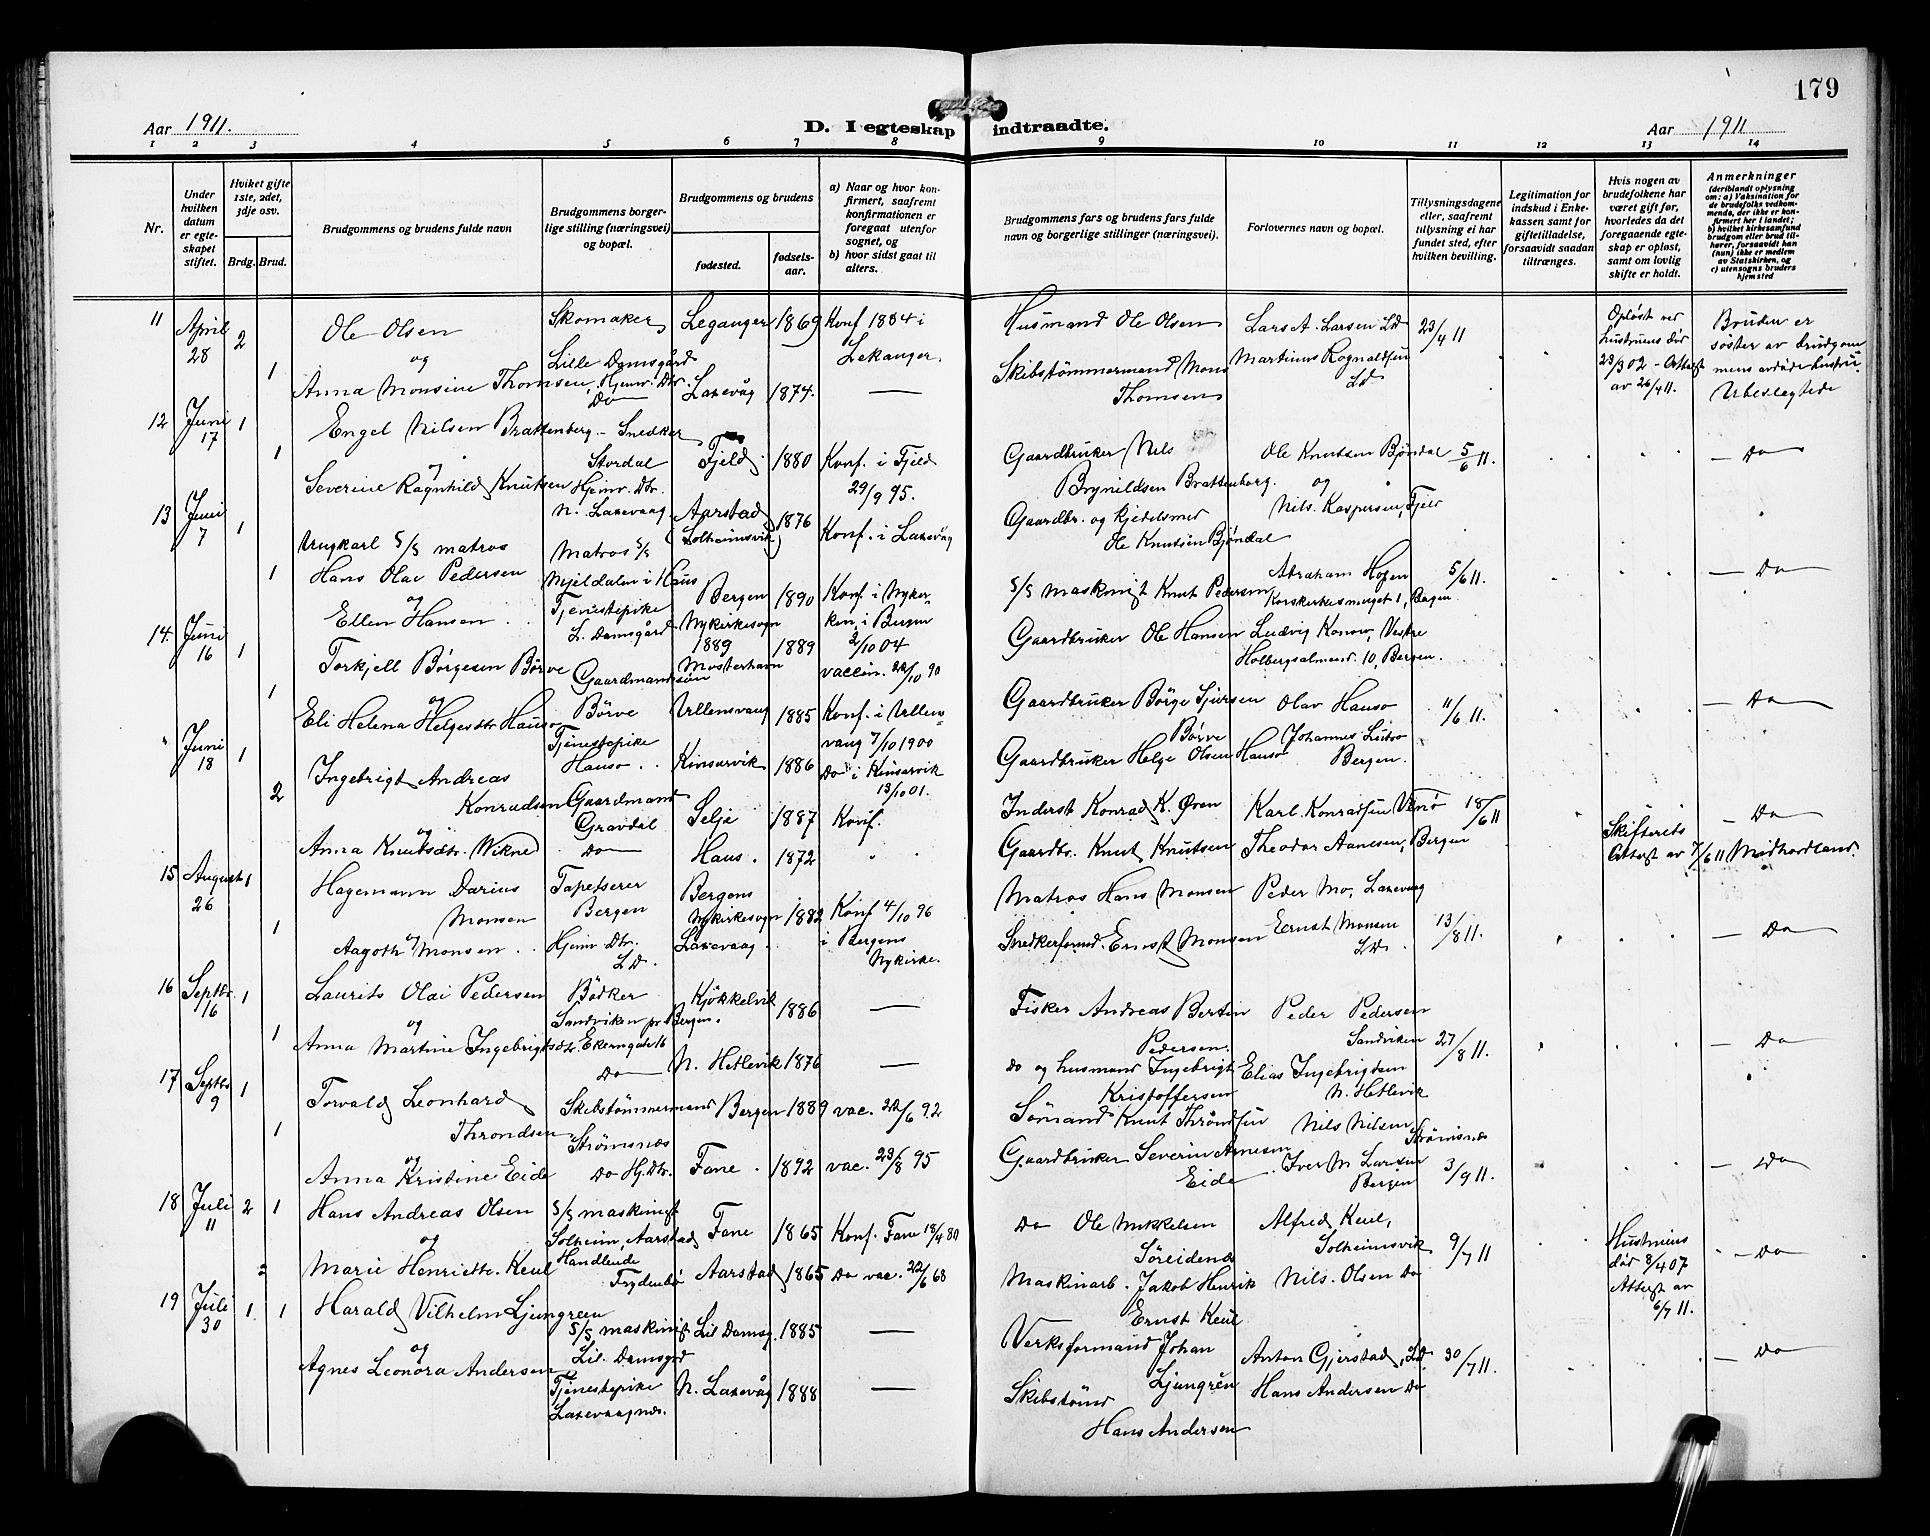 179
Aar 1911.
D. I egteskap indtraadte.
Aar 1911
1 2 3 4 5 6 7 8 9 10 11 12 13 14
Nr.
Under hvilken datum er egteskapet stiftet.
Hviket gifte 1ste, 2det, 3dje osv.
Brdg. Brud.
Brudgommens og brudens fulde navn
Brudgommens borgerlige stilling (næringsvei) og bopæl.
Brudgommens og brudens
fødested.
fødselsaar.
a) Naar og hvor konfirmert, saafremt konfirmationen er foregaat utenfor sognet, og
b) hvor sidst gaat til alters.
Brudgommens fars og brudens fars fulde navn og borgerlige stillinger (næringsvei).
Forlovernes navn og bopæl.
Tillysningsdagene eller, saafremt tillysning ei har fundet sted, efter hvilken bevilling.
Legitimation for indskud i Enkekassen samt for giftetilladelse, forsaavidt saadan tiltrænges.
Hvis nogen av brudefolkene har været gift før, hvorledes da det foregaaende egteskap er opløst, samt om lovlig skifte er holdt.
Anmerkninger
(deriblandt oplysning om: a) Vaksination for de brudefolks vedkommende, der ikke er konfirmert her i landet; b) hvilket kirkesamfund brudgom eller brud tilhører, forsaavidt han (hun) ikke er medlem av Statskirken, og c) utensogns bruders hjemsted
11 April 28 2 Ole Olsen Skomaker Leganger 1869 Konf 1884 i Husmand Ole Olsen Lars A. Larsen LD 23/4 11 Opløst ved Bruden er
og Lille Damsgård Lekanger. Hustruens død søster av brudgom
1 Anna Monsine Thomsen, Hjemv. Dtr. Do Laxevåg 1874. — Skibstømmermand Mons Thomsen Martinus Rognaldsen LD 23/3 02 - Attest av 26/4 11. mens avdøde hustru. Ubeslegtede
12 Juni 17 1 Engel Nilsen Brattenberg - Snedker
1 og Stordal Fjeld 1880 Konf. i Fjeld 29/9 95. Gaardbruker Nils Brynildsen Brattenborg. Ole Knutsen Bjøndal og 5/6 11. — Do —
Severine Ragnhild Knutsen Hjemv. Dtr. N. Laxevaag. Aarstad (Solheimsvik) 1876 Konf. i Laxevåg Gaardbr. og Kjedelsmed Ole Knutsen Bjøndal Nils Kaspersen, Fjeld
13 Juni 7 1 Ungkarl S/S matros Matros S/S
1 Hans Olav Pedersen Mjeldalen i Haus Bergen 1890 Konf. i Nykerken i Bergen 2/10 04 S/S maskinist Knut Pedersen Abraham Hopen Korskirkesmuget 1, Bergen 5/6 11. — Do —
og
Ellen Hansen Tjenestepike L. Damsgård Nykirkesogn 1889 Mosterhavn 1889 vaccin. 22/10 90 Gaardbruker Ole Hansen Ludvig Konow, Vestre Holbergsalmend. 10, Bergen.
14. Juni 16 1 Torkjell Børgesen Børve Gaardmandssøn
1 og Børve Ullensvang 1885 Konf. i Ullensvang 7/10 1900 Gaardbruker Børge Sjursen Børve Olav Hauso 11/6 11. — Do —
Eli Helena Helgesdtr Hauso Tjenestepike Hauso Kinsarvik 1886 Do i Kinsarvik 13/10 01. Gaardbruker Helge Olsen Hauso Johannes Lutro Bergen.
" Juni 18 1 Ingebrigt Andreas
2 Konradsen Gaardmand Gravdal Selje 1887 Konf. Inderst Konrad K. Øren Karl Konradsen 18/6 11 — Do
og
Anna Knutsdtr. Vikne Do Haus. 1872 Gaardbr. Knut Knutsen Theodor Aanesen, Bergen Skifterets Attest av 7/6 11 Midhordland.
15 August 26 1 Hagemann Darius Monsen Tapetserer Bergen Bergens Nykirkesogn 1882 Konf 4/10 96 Matros Hans Monsen Peder Mo, Laxevaag
1 og
Aagoth Monsen Hjemv Dtr. LD. Laxevaag. i Bergens Nykirke. Snedkerformd. Ernst Monsen Ernst Monsen LD. 13/8 11. — Do —
16 Septbr. 16 1 Laurits Olai Pedersen Bødker Kjøkkelvik 1886 — Fisker Andreas Bertin Pedersen. Peder Pedersen Sandviken
og Sandviken pr Bergen.
1 Anna Martine Ingebrigtsdtr. Ekerngate 16 Do N. Hetlevik 1876 — Do og husmand Ingebrigt Kristoffersen Elias Ingebrigtsen N. Hetlevik 27/8 11. — Do —
17 Septbr 9 1 Torvald Leonhard Throndsen Skibstømmermand Strømsnæs Bergen 1889 vac. 22/6 92 Sømand Knut Throndsen Nils Nilsen Strømsnæs
1 og
Anna Kristine Eide Do Hj. Dtr. Fane. 1892 vac. 23/8 95 Gaardbruker Severin Arnesen Eide Iver M. Larsen Bergen 3/9 11. — Do
18 Juli 11 2 1 Hans Andreas Olsen S/S maskinist Solheim, Aarstad Fane 1865 Konf. Fane 18/4 80 Do Ole Mikkelsen Søreidene Alfred Keul, Solheimsvik 9/7 11 Hustruens død 8/4 07 Attest av 6/7 11. — Do —
og
Marie Henriette Keul Handlende Frydenbø Aarstad 1865 Do vac. 22/6 68 Maskinarb. Jakob Henrik Ernst Keul Nils Olsen Do
19 Juli 30 1 1 Harald Vilhelm Ljungreen S/S maskinist Lil. Damsgrd Lil Damsg. 1885 — Verksformand Johan Ljungrén Anton Gjerstad, LD 30/7 11. — Do —
og
Agnes Leonora Andersen Tjenestepike Laxevaagnes. N. Laxevåg 1888 — Skibstømd Hans Andersen Hans Andersen Do